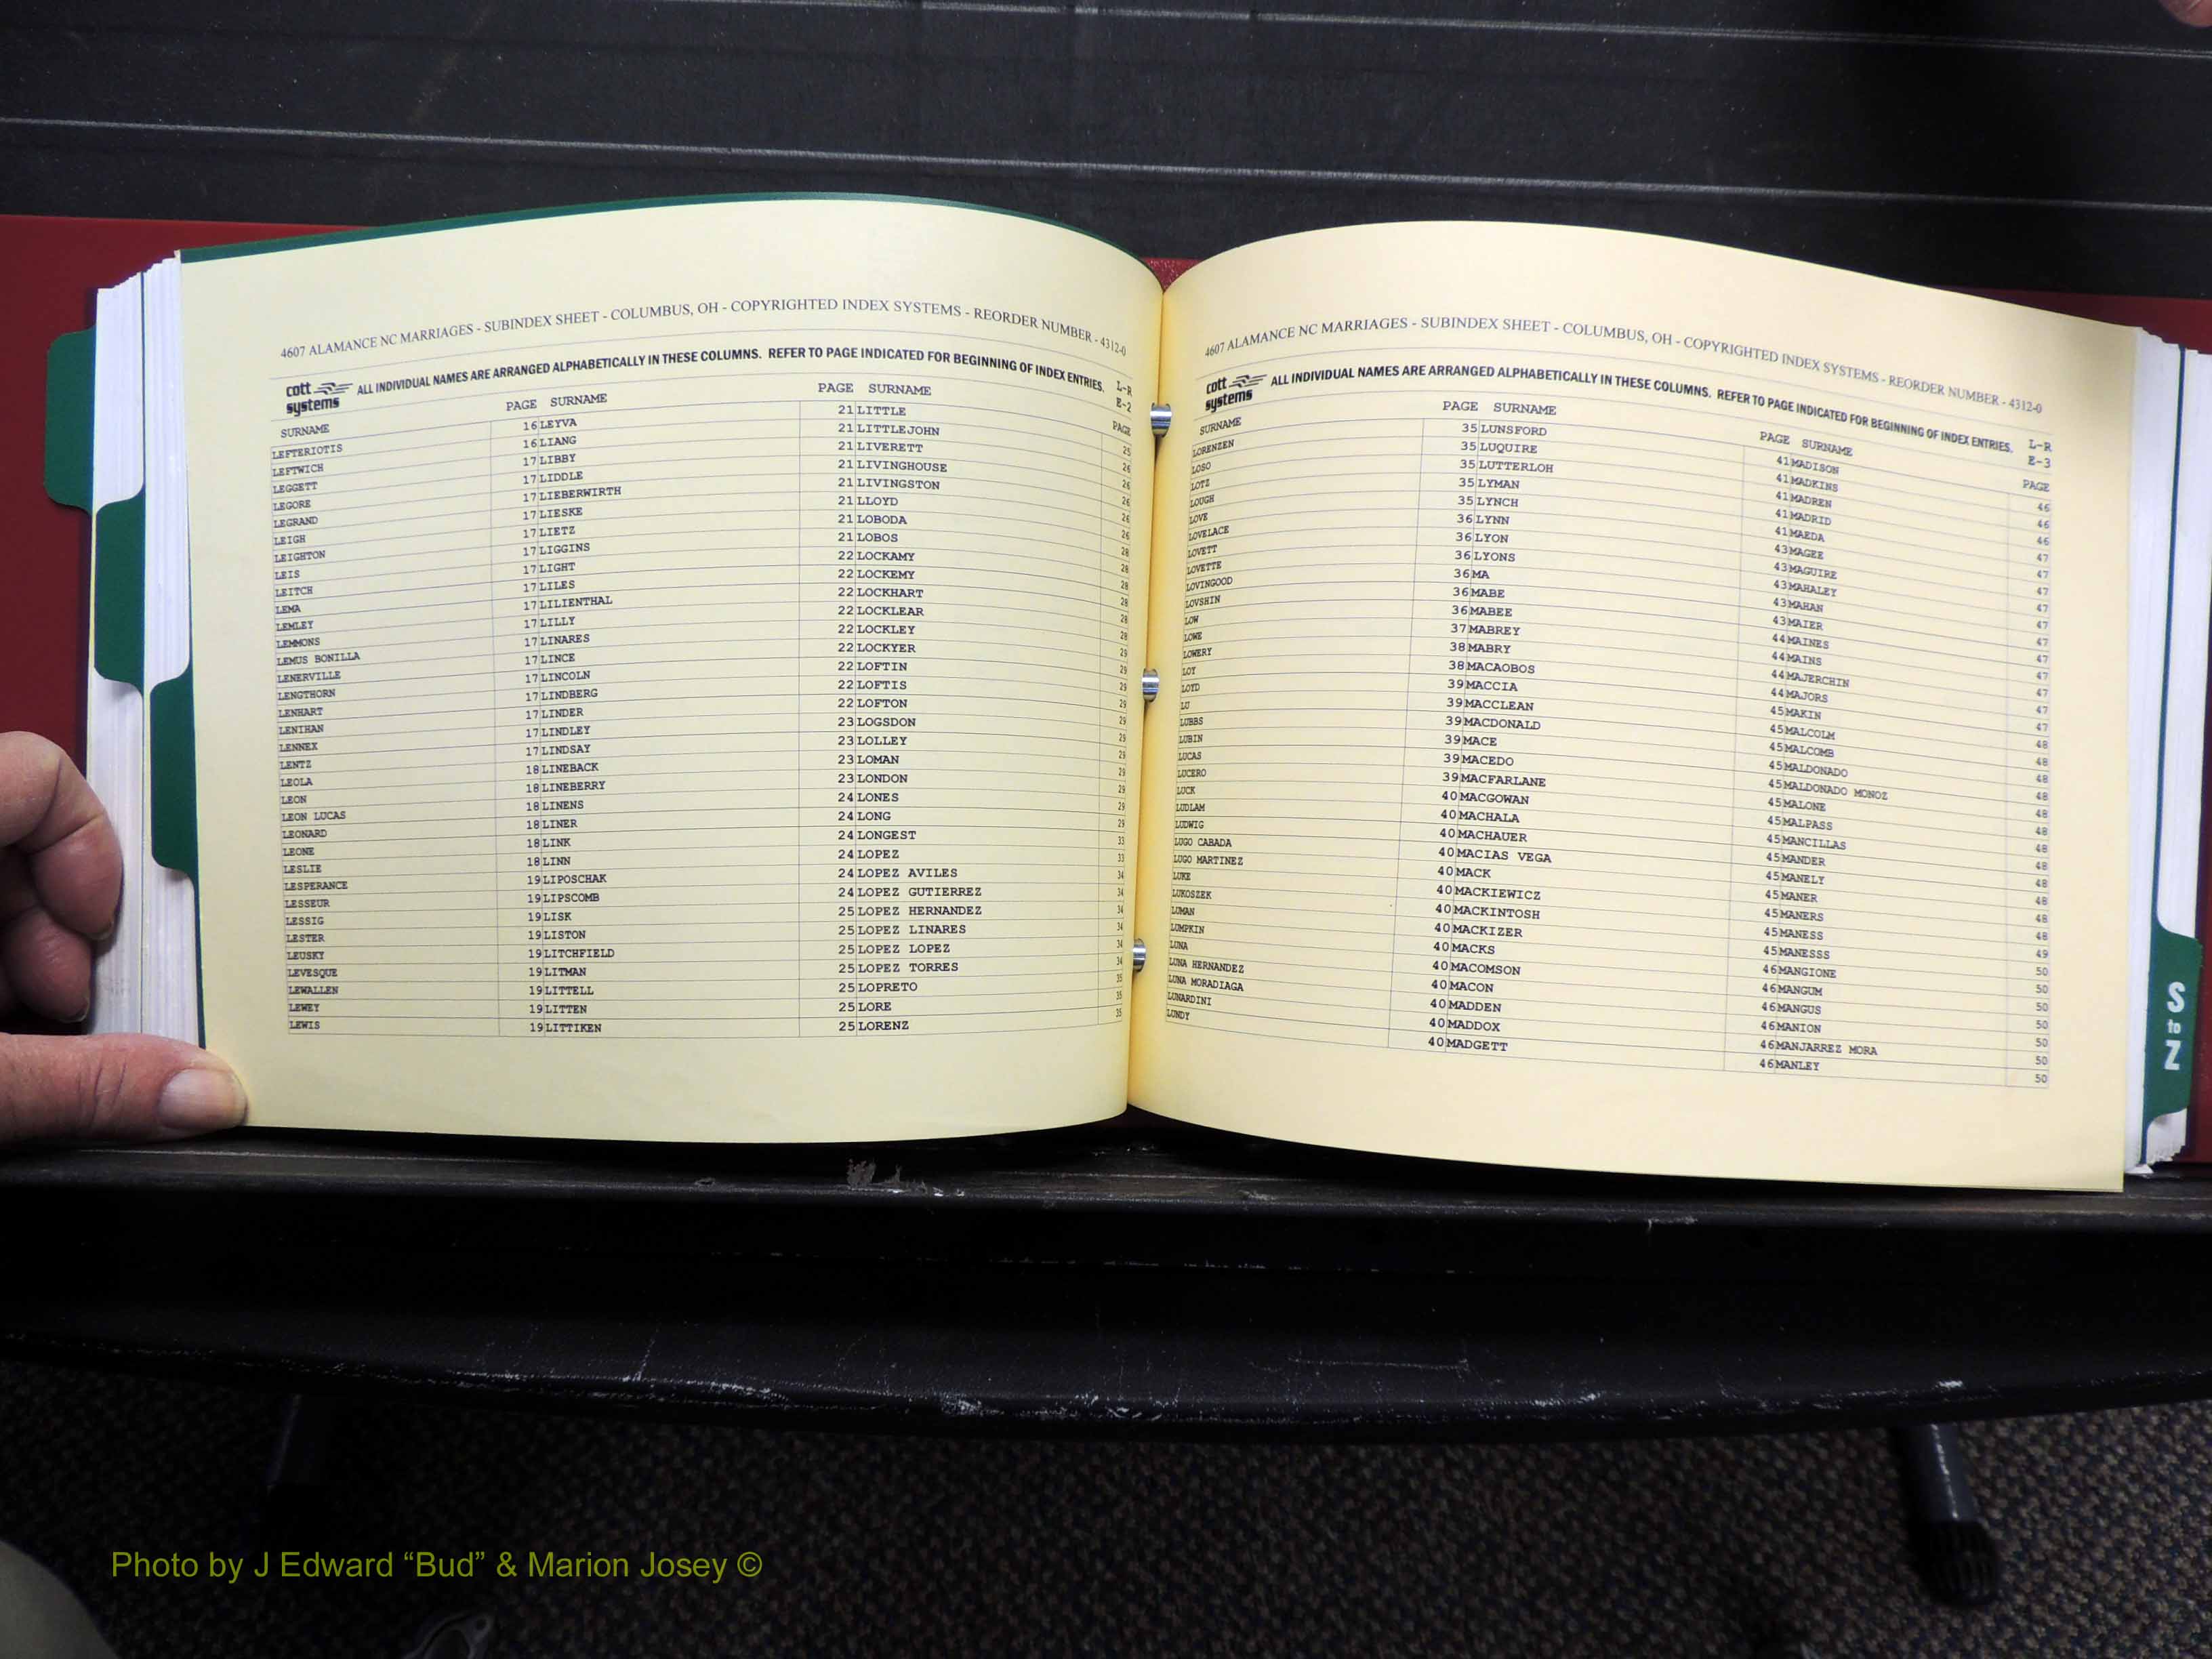 4607 ALAMANCE NC MARRIAGES - SUBINDEX SHEET - COLUMBUS, OH - COPYRIGHTED INDEX SYSTEMS - REORDER NUMBER - 4312-0
cott systems ALL INDIVIDUAL NAMES ARE ARRANGED ALPHABETICALLY IN THESE COLUMNS. REFER TO PAGE INDICATED FOR BEGINNING OF INDEX ENTRIES. L-R
E-2
SURNAME PAGE SURNAME PAGE SURNAME PAGE
LEFTERIOTIS 16 LEYVA 21 LITTLE 25
LEFTWICH 16 LIANG 21 LITTLEJOHN 26
LEGGETT 17 LIBBY 21 LIVERETT 26
LEGORE 17 LIDDLE 21 LIVINGHOUSE 26
LEGRAND 17 LIEBERWIRTH 21 LIVINGSTON 26
LEIGH 17 LIESKE 21 LLOYD 26
LEIGHTON 17 LIETZ 21 LOBODA 28
LEIS 17 LIGGINS 21 LOBOS 28
LEITCH 17 LIGHT 22 LOCKAMY 28
LEMA 17 LILES 22 LOCKEMY 28
LEMLEY 17 LILIENTHAL 22 LOCKHART 28
LEMMONS 17 LILLY 22 LOCKLEAR 28
LEMUS BONILLA 17 LINARES 22 LOCKLEY 29
LENERVILLE 17 LINCE 22 LOCKYER 29
LENGTHORN 17 LINCOLN 22 LOFTIN 29
LENHART 17 LINDBERG 22 LOFTIS 29
LENIHAN 17 LINDER 22 LOFTON 29
LENNEX 17 LINDLEY 23 LOGSDON 29
LENTZ 17 LINDSAY 23 LOLLEY 29
LEOLA 18 LINEBACK 23 LOMAN 29
LEON 18 LINEBERRY 23 LONDON 29
LEON LUCAS 18 LINENS 24 LONES 29
LEONARD 18 LINER 24 LONG 29
LEONE 18 LINK 24 LONGEST 33
LESLIE 18 LINN 24 LOPEZ 33
LESPERANCE 19 LIPOSCHAK 24 LOPEZ AVILES 34
LESSEUR 19 LIPSCOMB 24 LOPEZ GUTIERREZ 34
LESSIG 19 LISK 25 LOPEZ HERNANDEZ 34
LESTER 19 LISTON 25 LOPEZ LINARES 34
LEUSKY 19 LITCHFIELD 25 LOPEZ LOPEZ 34
LEVESQUE 19 LITMAN 25 LOPEZ TORRES 34
LEWALLEN 19 LITTELL 25 LOPRETO 35
LEWEY 19 LITTEN 25 LORE 35
LEWIS 19 LITTIKEN 25 LORENZ 35
4607 ALAMANCE NC MARRIAGES - SUBINDEX SHEET - COLUMBUS, OH - COPYRIGHTED INDEX SYSTEMS - REORDER NUMBER - 4312-0
cott systems ALL INDIVIDUAL NAMES ARE ARRANGED ALPHABETICALLY IN THESE COLUMNS. REFER TO PAGE INDICATED FOR BEGINNING OF INDEX ENTRIES. L-R
E-3
SURNAME PAGE SURNAME PAGE SURNAME PAGE
LORENZEN 35 LUNSFORD 41 MADISON 46
LOSO 35 LUQUIRE 41 MADKINS 46
LOTZ 35 LUTTERLOH 41 MADREN 46
LOUGH 35 LYMAN 41 MADRID 47
LOVE 35 LYNCH 41 MAEDA 47
LOVELACE 36 LYNN 43 MAGEE 47
LOVETT 36 LYON 43 MAGUIRE 47
LOVETTE 36 LYONS 43 MAHALEY 47
LOVINGOOD 36 MA 43 MAHAN 47
LOVSHIN 36 MABE 43 MAIER 47
LOW 36 MABEE 44 MAINES 47
LOWE 37 MABREY 44 MAINS 47
LOWERY 38 MABRY 44 MAJERCHIN 47
LOY 38 MACAOBOS 44 MAJORS 47
LOYD 39 MACCIA 45 MAKIN 48
LU 39 MACCLEAN 45 MALCOLM 48
LUBBS 39 MACDONALD 45 MALCOMB 48
LUBIN 39 MACE 45 MALDONADO 48
LUCAS 39 MACEDO 45 MALDONADO MONOZ 48
LUCERO 39 MACFARLANE 45 MALONE 48
LUCK 40 MACGOWAN 45 MALPASS 48
LUDLAM 40 MACHALA 45 MANCILLAS 48
LUDWIG 40 MACHAUER 45 MANDER 48
LUGO CABADA 40 MACIAS VEGA 45 MANELY 48
LUGO MARTINEZ 40 MACK 45 MANER 48
LUKE 40 MACKIEWICZ 45 MANERS 48
LUKOSZEK 40 MACKINTOSH 45 MANESS 49
LUMAN 40 MACKIZER 45 MANESSS 50
LUMPKIN 40 MACKS 46 MANGIONE 50
LUNA 40 MACOMSON 46 MANGUM 50
LUNA HERNANDEZ 40 MACON 46 MANGUS 50
LUNA MORADIAGA 40 MADDEN 46 MANION 50
LUNARDINI 40 MADDOX 46 MANJARREZ MORA 50
LUNDY 40 MADGETT 46 MANLEY 50
S to Z
Photo by J Edward “Bud” & Marion Josey ©